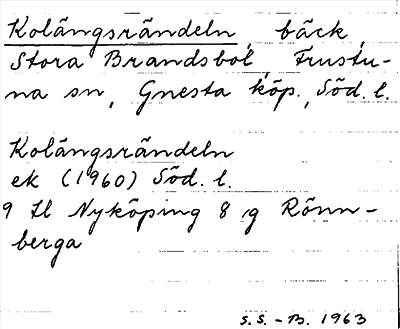 Kolängsrändeln, bäck,
Stora Brandsbol, Frustu-
na sn, Gnesta köp., Söd. l.
Kolängsrändeln
ek (1960) Söd. l.
9 Il Nyköping 8 g Rönn-
berga
S.S.-B. 1963